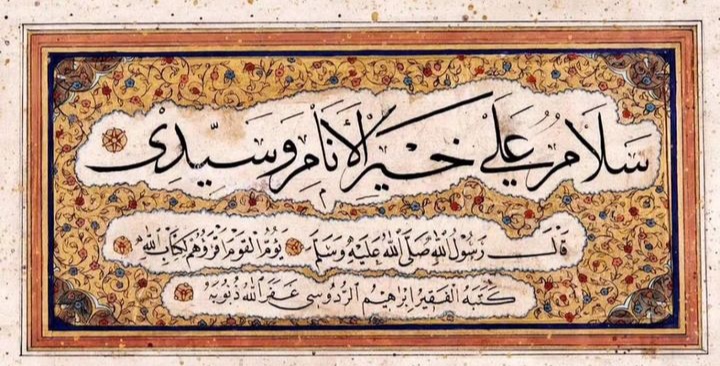 سَلَامٌ عَلَى خَيْرِ الْأَنَامِ وَسَيِّدِي
قَالَ رَسُولُ اللهِ صَلَّى اللهُ عَلَيْهِ وَسَلَّمَ يَؤُمُّ الْقَوْمَ أَقْرَؤُهُمْ لِكِتَابِ اللهِ
كَتَبَهُ الْفَقِيرُ إِبْرَاهِيمُ الرُّدُوسِي غَفَرَ اللهُ ذُنُوبَهُ